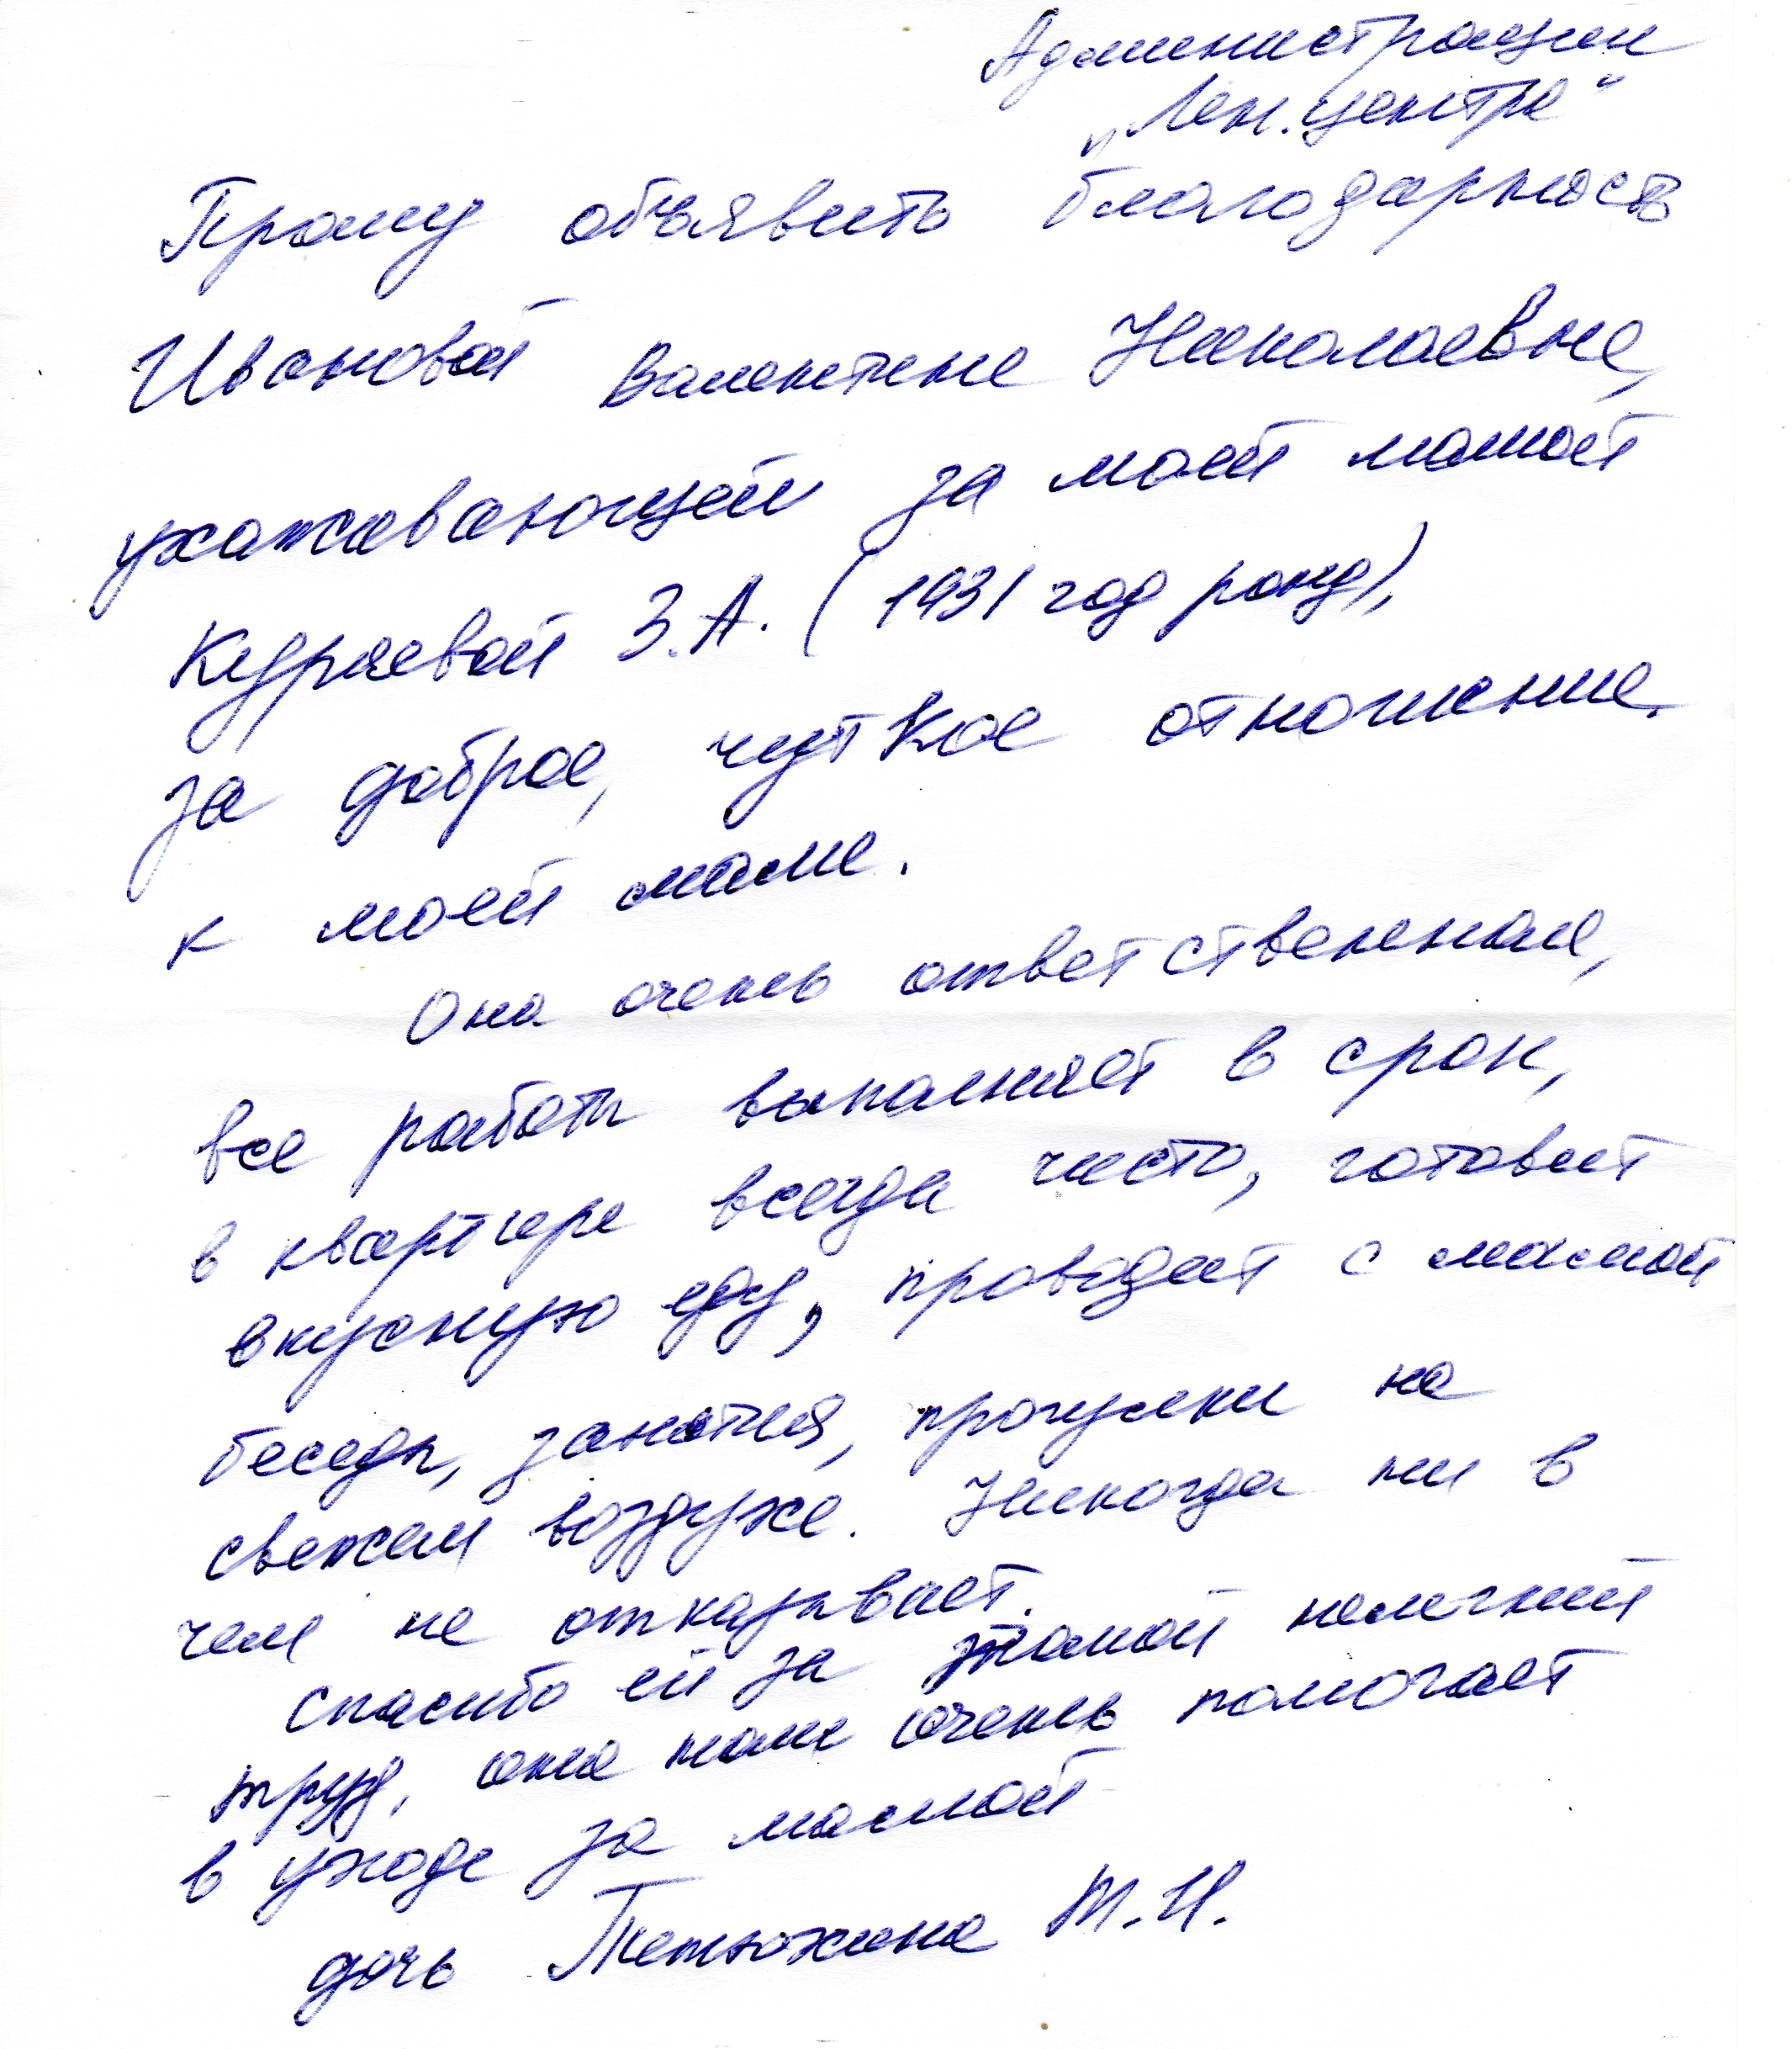 Администрации
„Лен. центра"
Прошу объявить благодарность
Ивановой Валентине Николаевне,
ухаживающей за моей мамой
Куряевой З.А. (1931 год рожд),
за доброе, чуткое отношение
к моей маме.
Она очень ответственная,
все работы выполняет в срок,
в квартире всегда чисто, готовит
вкусную еду, проводит с мамой
беседы, занятия, прогулки на
свежем воздухе. Никогда ни в
чем не отказывает.
Спасибо ей за такой нелегкий
труд, она нам очень помогает
в уходе за мамой
дочь Тетюхина Т.И.